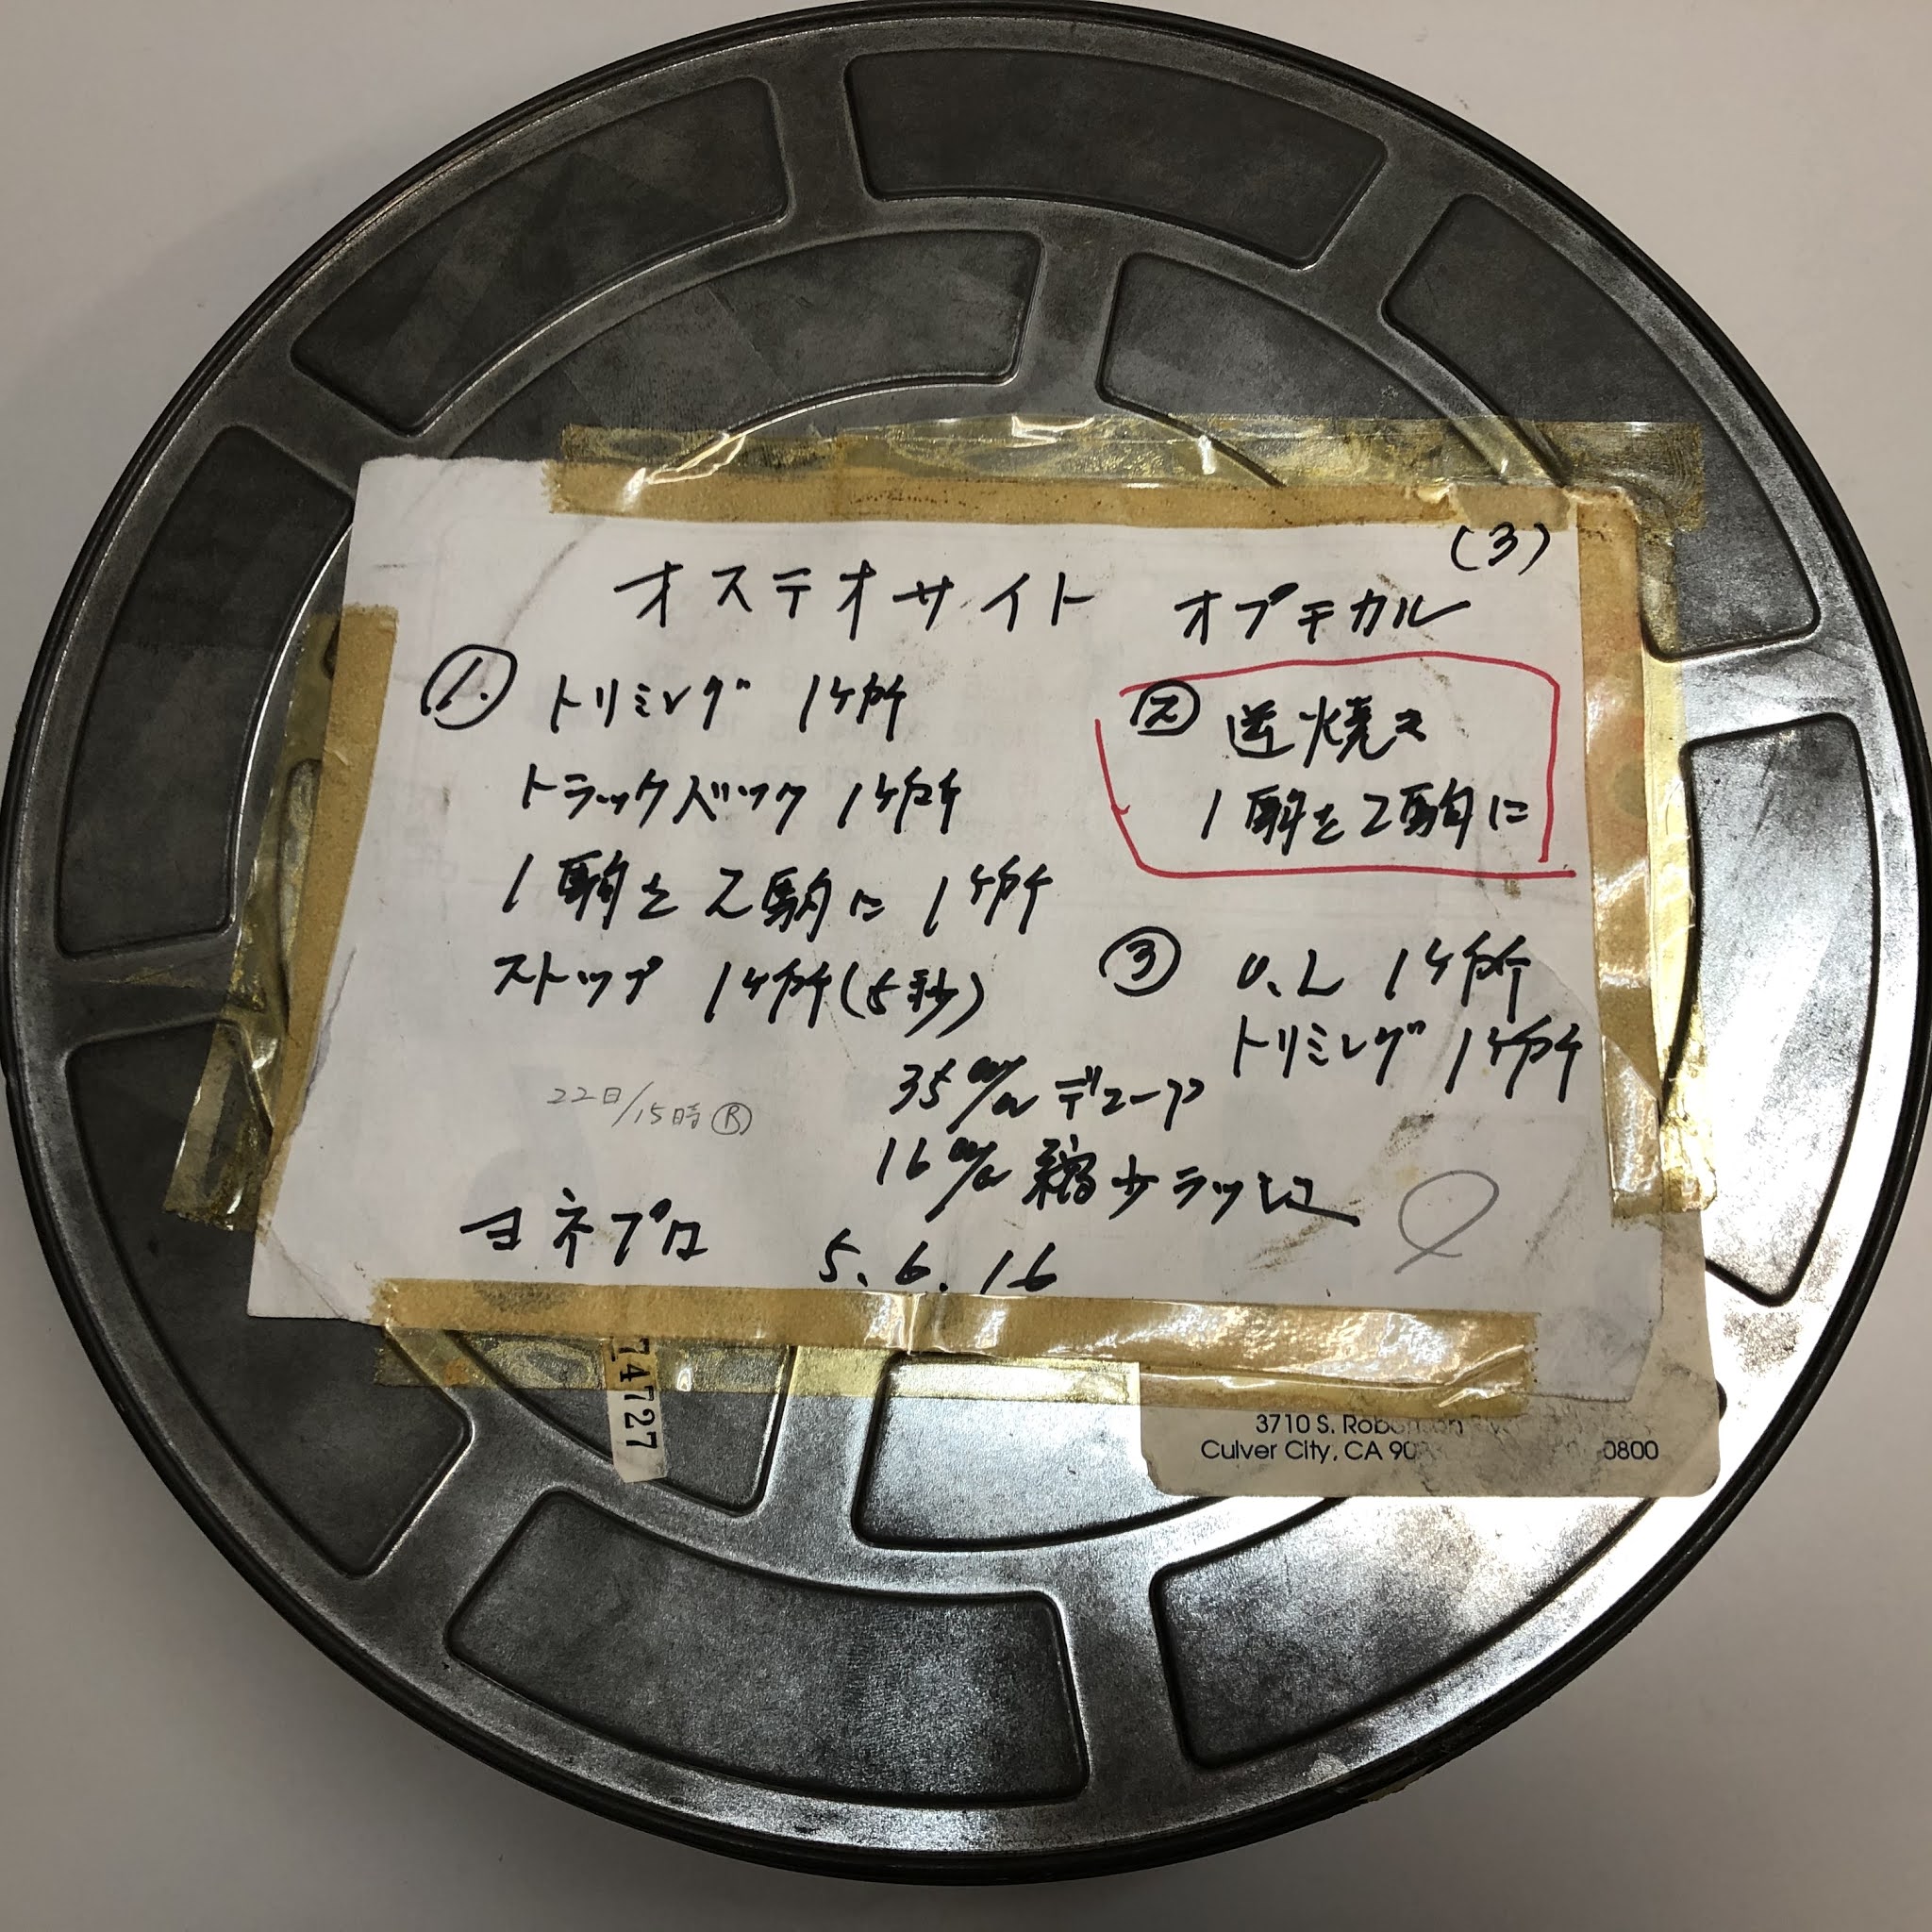 (3)
オステオサイト オプチカル
①. トリミング 1ヶ所
トラックバック 1ヶ所
1駒を2駒に 1ヶ所
ストップ 1ヶ所(5秒)
② 逆焼き
1駒を2駒に
③ O.L 1ヶ所
トリミング 1ヶ所
35m/m デュープ
16m/m 縮少ラッシュ
22日/15時Ⓑ
ヨネプロ 5.6.16
74727
3710 S.
Culver City, CA 0800